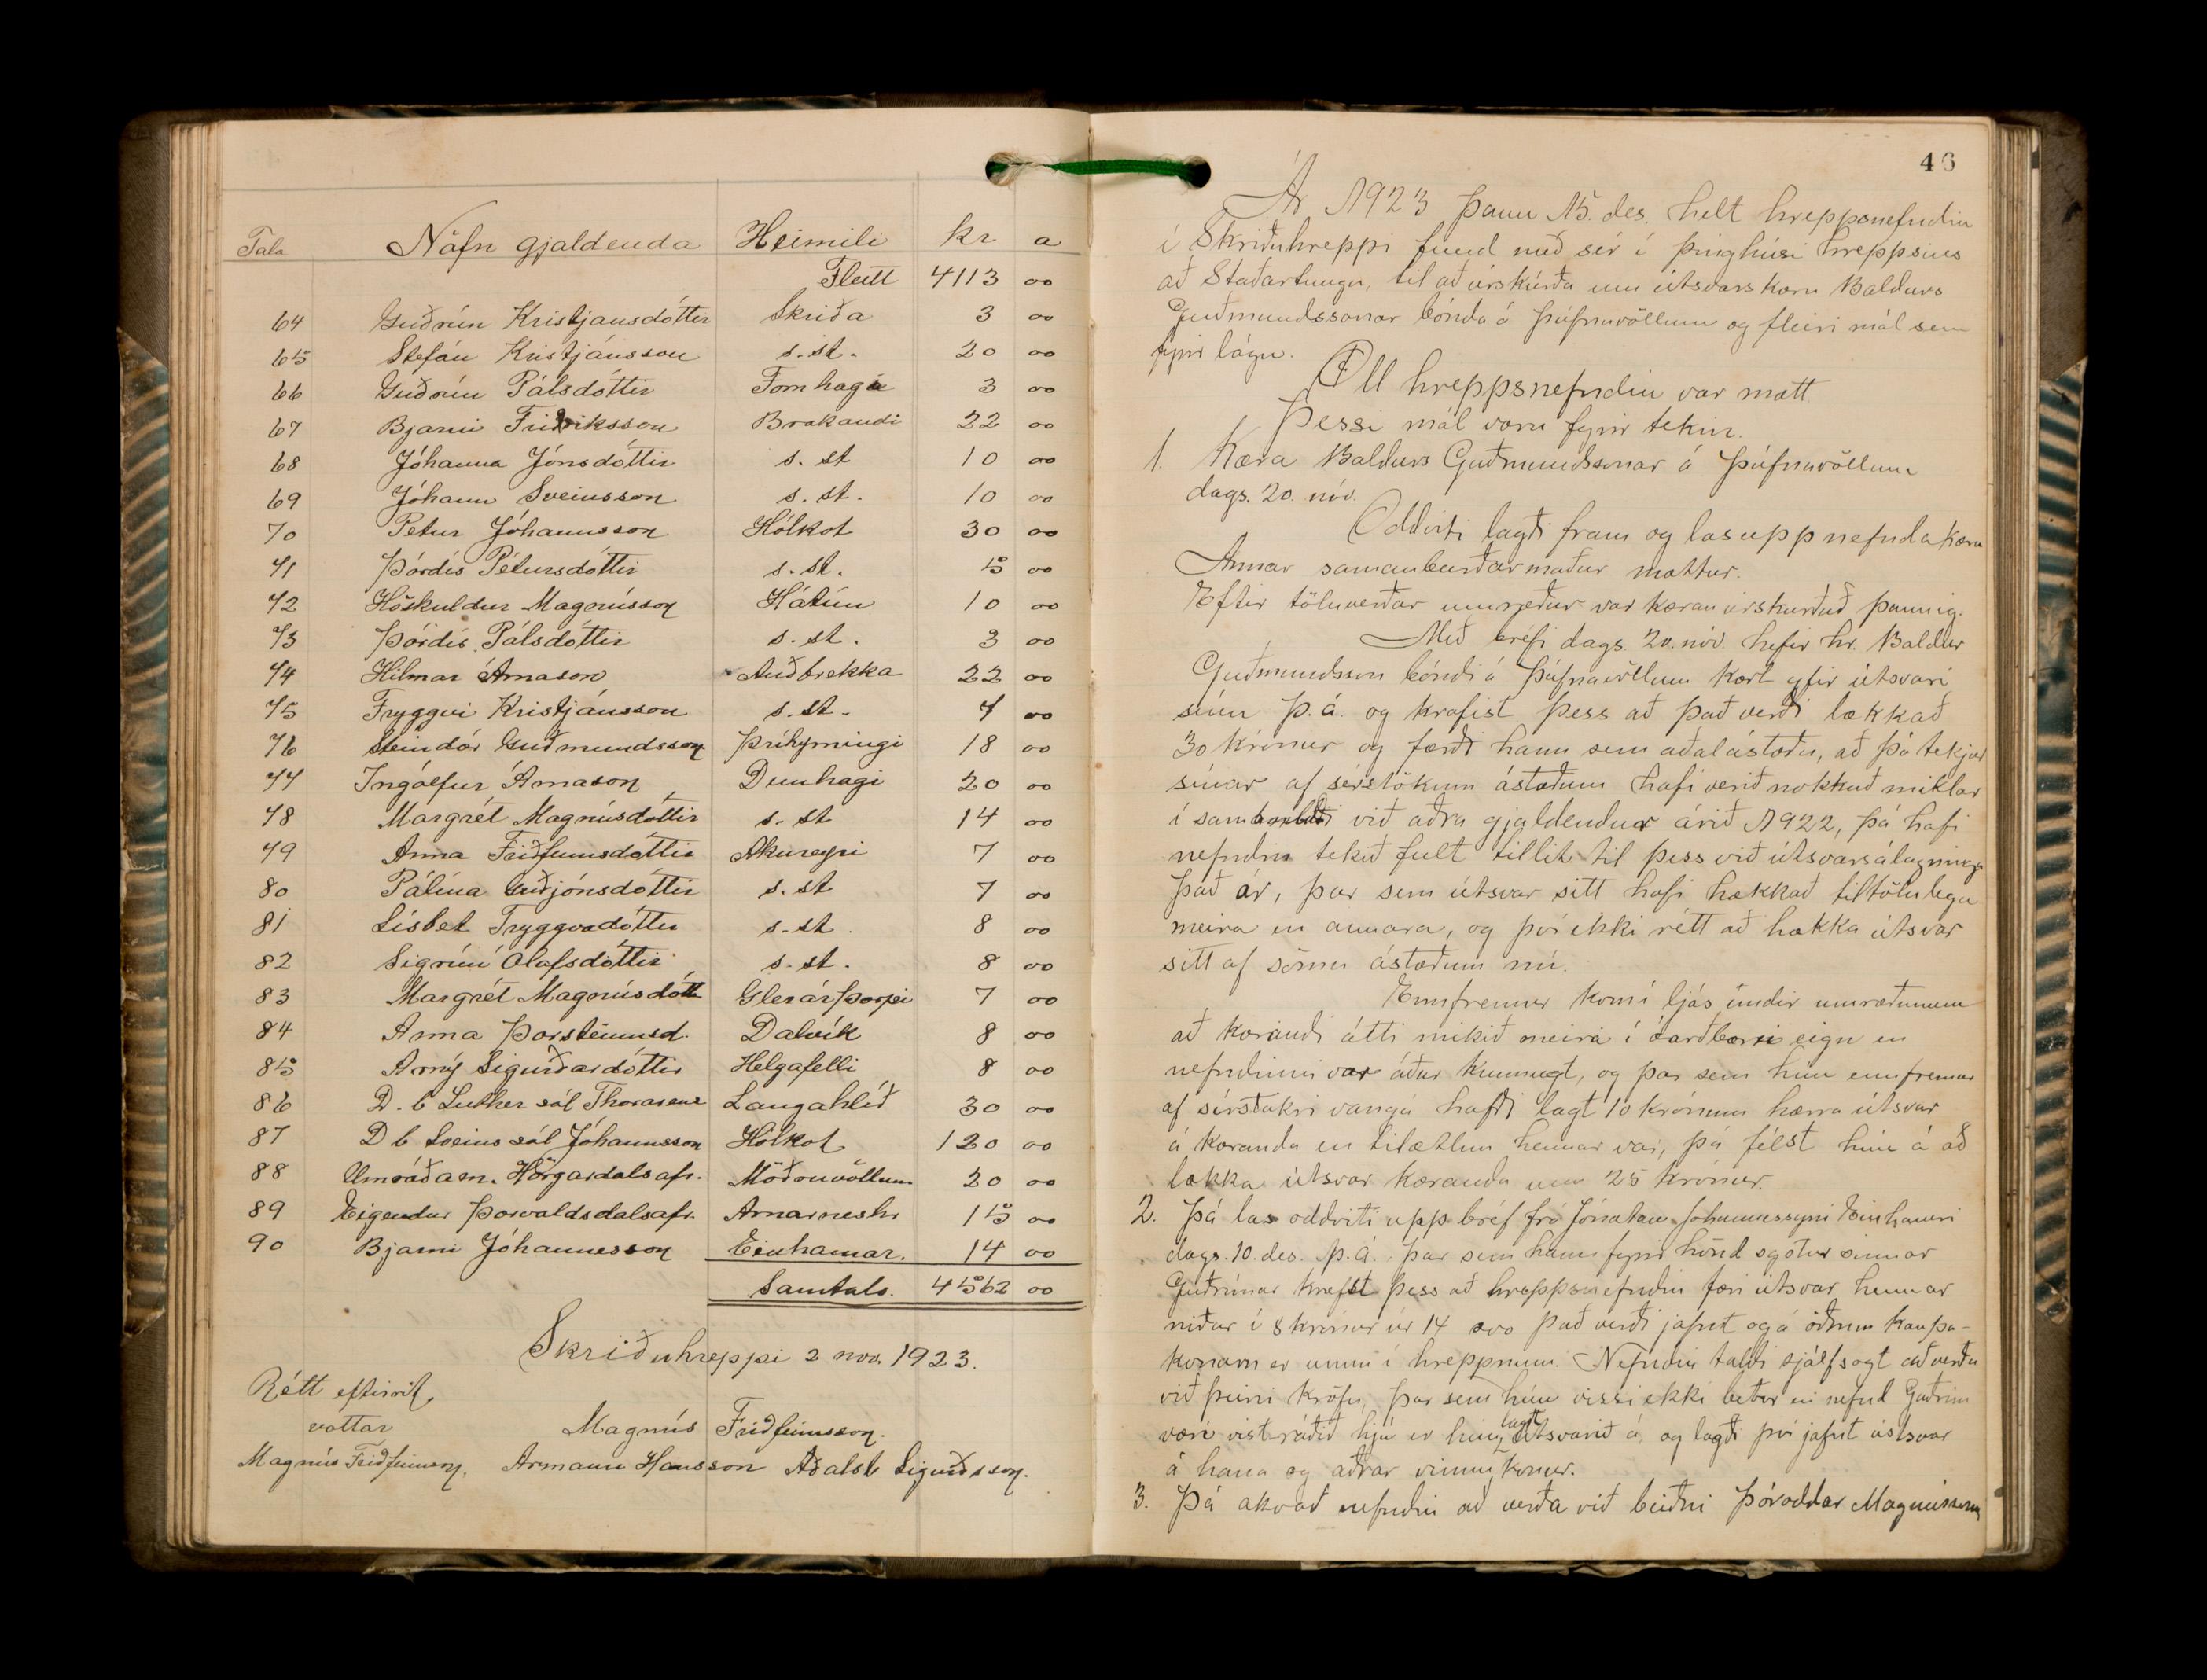 Tala Nöfn gjaldenda Heimili kr a
Flutt 4113 00
64 Guðrún Kristjansdóttir Skriða 3 00
65 Stefán Kristjánsson s.st. 20 00
66 Guðrún Pálsdóttir Fornhaga 3 00
67 Bjarni Friðriksson Brakandi 22 00
68 Jóhanna Jónsdóttir s. st 10 00
69 Jóhann Sveinsson s. st. 10 00
70 Petur Jóhannsson Hólkot 30 00
71 Þórdís Pétursdóttir s. st. 5 00
72 Höskuldur Magnússon Hátún 10 00
73 Þórdís Pálsdóttir s. st. 3 00
74 Hilmar Árnason Auðbrekka 22 00
75 Tryggvi Kristjánsson s. st. 7 00
76 Steindór Guðmundsson Þríhyrningi 18 00
77 Ingólfur Árnason Dunhagi 20 00
78 Margrét Magnúsdóttir s. st 14 00
79 Anna Friðfinnsdóttir Akureyri 7 00
80 Pálína Guðjónsdóttir s. st 7 00
81 Lísbet Tryggvadóttir s. st. 8 00
82 Sigrún Ólafsdóttir s. st. 8 00
83 Margrét Magnúsdóttir Glerárþorpi 7 00
84 Anna Þorsteinnsd. Dalvík 8 00
85 Arný Sigurðardóttir Helgafelli 8 00
86 D. b Luther sál Thorarens Langahlíð 30 00
87 D b Sveins sál Jóhannsson Hólkot 120 00
88 Umráðam. Hörgardalsafr. Möðruvöllum 20 00
89 Eigendur Þorvaldsdalsafr. Arnarneshr 15 00
90 Bjarni Jóhannesson Einhamar. 14 00
Samtals. 4562 00
Skriðuhreppi 2 nov. 1923.
Rétt eftirrit,
vottar Magnús Friðfinnsson.
Magnús Friðfinnsson, Armann Hansson Aðalst Sigurðsson.
46
Ár 1923 þann 15. des. helt hreppsnefndin
í Skriðuhreppi fund með sér í þinghúsi hreppsins
að Staðartungu, til að úrskurða um útsvarskæru Baldurs
Guðmundssonar bónda á Þúfnavöllum og fleiri mál sem
fyrir lágu.
Öll hreppsnefndin var mætt.
Þessi mál voru fyrir tekin.
1. Kæra Baldurs Guðmundssonar á Þúfnavöllum
dags. 20. nóv.
Oddviti lagði fram og las upp nefnda kæru
Annar samanburðarmaður mættur.
Eftir töluverðar umræður var kæran úrskurðuð þannig:
Með bréfi dags. 20. nóv. hefir hr. Baldur
Guðmundsson bóndi á Þúfnavöllum kært yfir útsvari
sínu þ.á. og krafist þess að það verði lækkað
30 krónur og færði hann sem aðalástæðu, að þó tekjur
sínar af sérstökum ástæðum hafi verið nokkuð miklar
í samanburði við aðra gjaldendur árið 1922, þá hafi
nefndin tekið fult tillit til þess við útsvarsálagninga
það ár, þar sem útsvar sitt hafi hækkað tiltölulega
meira en annara, og því ekki rétt að hækka útsvar
sitt af sömu ástæðum nú.
Ennfremur kom í ljós undir umræðunum
að kærandi átti mikið meira í arðberri eign en
nefndinni var áður kunnugt, og þar sem hún ennfremur
af sérstakri vangá hafði lagt 10 krónum hærra útsvar
á kæranda en tilætlun hennar var, þá félst hún á að
lækka útsvar kæranda um 25 krónur.
2. Þá las oddviti upp bréf frá Jónatan Jóhannessyni Einhamri
dags. 10. des. þ.á. þar sem hann fyrir hönd systur sinnar
Guðrúnar krefst þess að hreppsnefndin færi útsvar hennar
niður í 8 krónur úr 14 svo það verði jafnt og á öðrum kaupa-
konum er unnu í hreppnum. Nefndin taldi sjálfsagt að verða
við þeirri kröfu, þar sem hún vissi ekki betur en nefnd Guðrún
væri vistráðið hjú er hún lagði útsvarið á, og lagði því jafnt útsvar
á hana og aðrar vinnukonur.
3. Þá ákvað nefndin að verða við beiðni Þóroddar Magnússonar